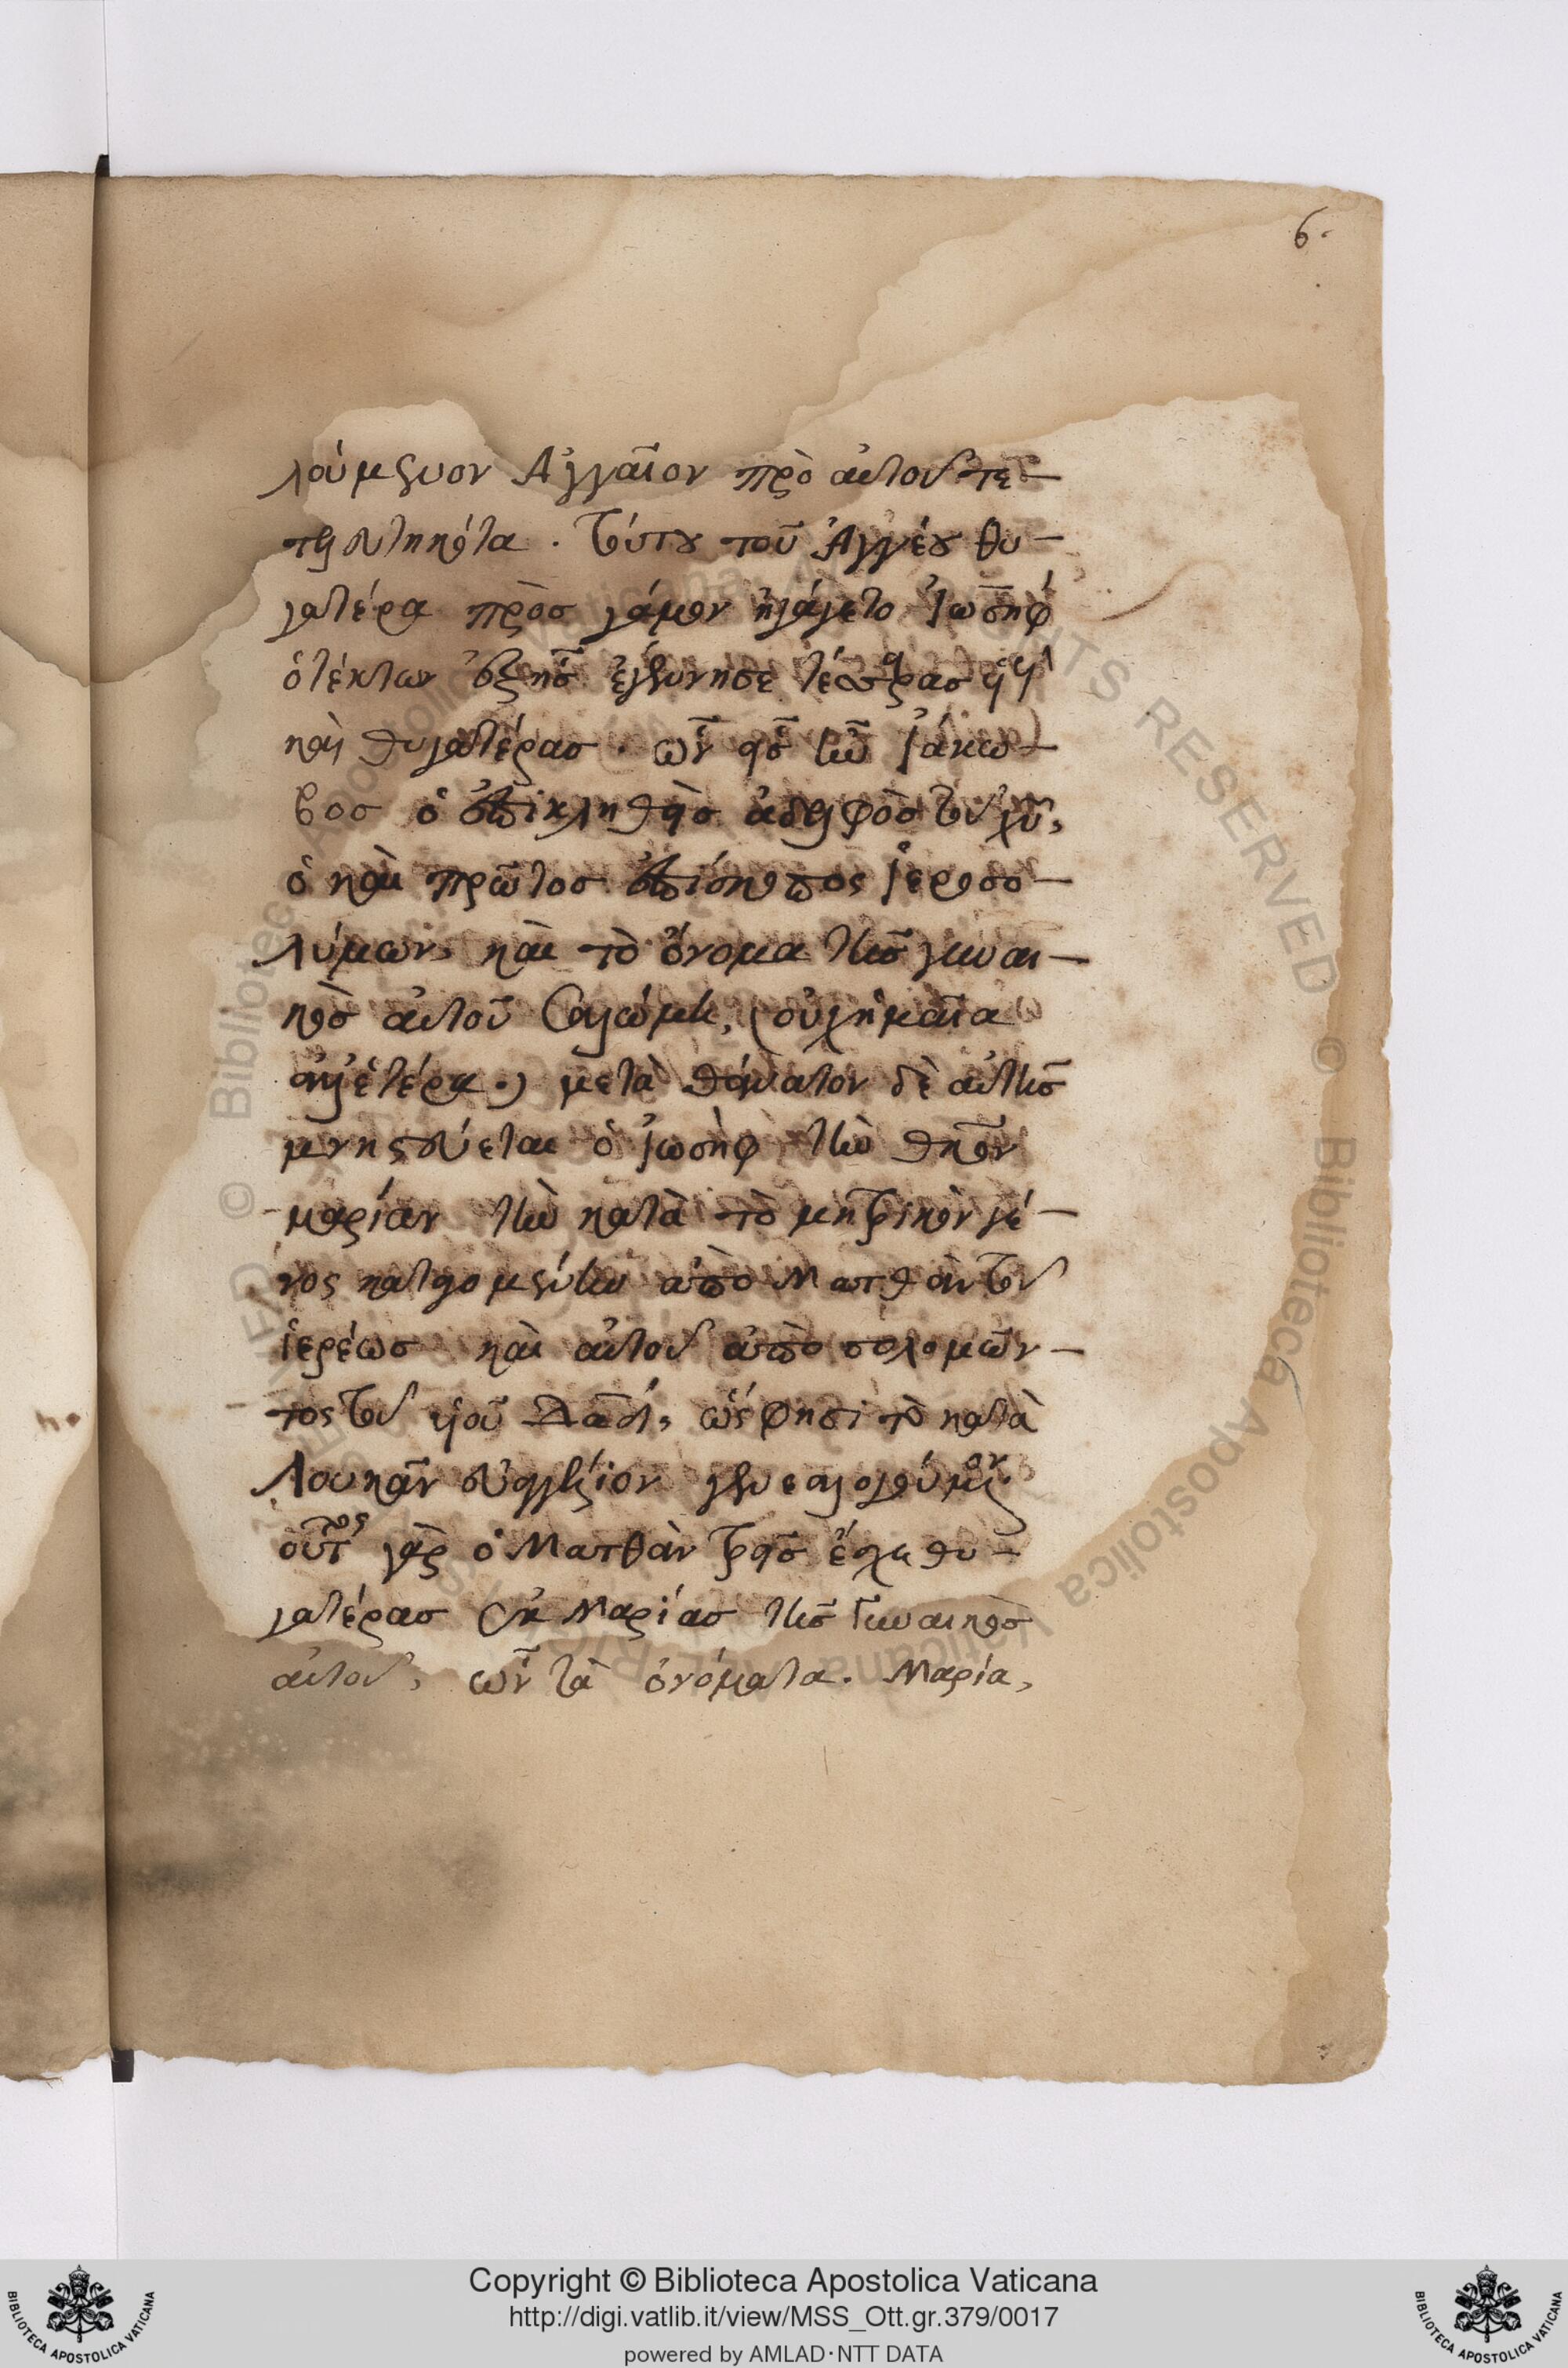 6.
λούμενον Ἀγγαῖον πρὸ αὐτοῦ τε-
τελευτηκότα. τούτου τοῦ Ἀγγέου θυ-
γατέρα πρὸσ γάμον ἠγάγετο Ἰωσὴφ
ὁ τέκτων ἐξ ἧσ ἐγέννησε τέσσαρασ
καὶ θυγατέρασ. ὧν εἷσ ἦν Ἰάκω-
βοσ ὁ ἐπικληθεὶσ ἀδελφὸσ τοῦ χυ,
ὁ καὶ πρῶτοσ ἐπίσκοπος Ἱεροσο-
λύμων, καὶ τὸ ὄνομα τῆσ γυναι-
κὸσ αὐτοῦ Σαλώμη, (οὐχ ἡ μαῖα
ἀλλ' ἑτέρα.) μετὰ θάνατον δὲ αὐτῆσ
μνηστεύεται ὁ Ἰωσὴφ τὴν θκον
μαρίαν τὴν κατὰ τὸ μητρικὸν γέ-
νος καταγομένην ἀπὸ Ματθὰν τοῦ
ἱερέωσ καὶ αὐτοῦ ἀπὸ σολομῶν-
τος τοῦ υἱοῦ Δαδ, ὥς φησι τὸ κατὰ
Λουκᾶν εὐαγγέλιον γενεαλογούμενον
οὗτος γὰρ ὁ Ματθὰν τρεῖσ ἔσχε θυ-
γατέρασ ἐκ Μαρίασ τῆσ γυναικὸσ
αὐτοῦ, ὧν τὰ ὀνόματα. Μαρία,
Copyright © Biblioteca Apostolica Vaticana
http://digi.vatlib.it/view/MSS_Ott.gr.379/0017
powered by AMLAD·NTT DATA
BIBLIOTECA APOSTOLICA VATICANA
BIBLIOTECA APOSTOLICA VATICANA